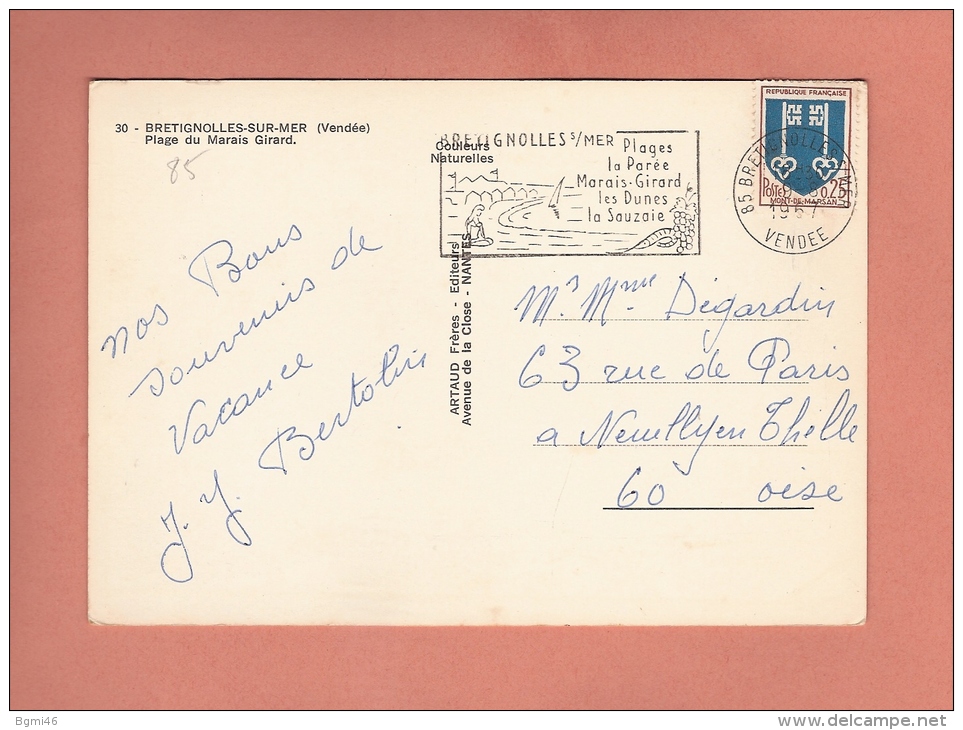 30 - BRETIGNOLLES-SUR-MER (Vendée)
Plage du Marais Girard.
85
Couleurs
Naturelles
BRETIGNOLLES S/MER
Plages
la Parée
Marais-Girard
les Dunes
la Sauzaie
REPUBLIQUE FRANÇAISE
POSTES 0,25
MONT-DE-MARSAN
85 BRETIGNOLLES S MER
1967
VENDEE
ARTAUD Frères - Editeurs
Avenue de la Close - NANTES
nos Bons
souvenirs de
Vacance
J. Y. Bertolin
Mrs Mme Dégardin
63 rue de Paris
a Neuillyen Thelle
60 oise
Bgmi46
www.delcampe.net